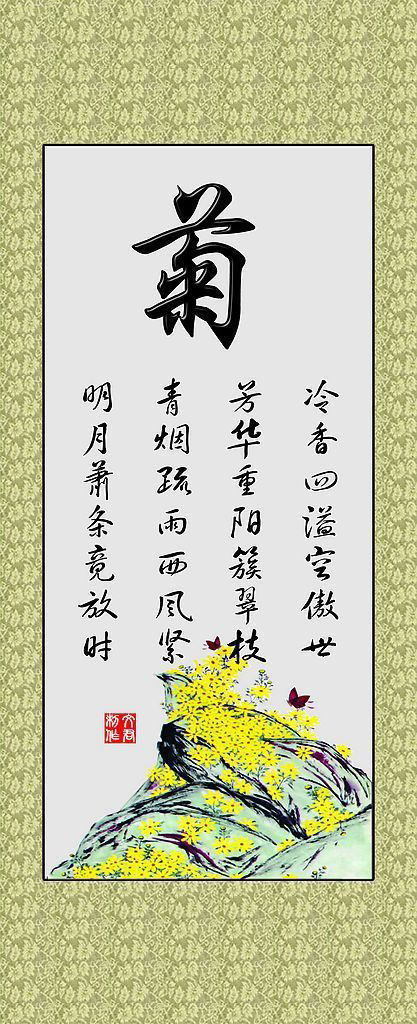 菊
冷香四溢空傲世
芳华重阳簇翠枝
青烟疏雨西风紧
明月萧条竟放时
文君
制作